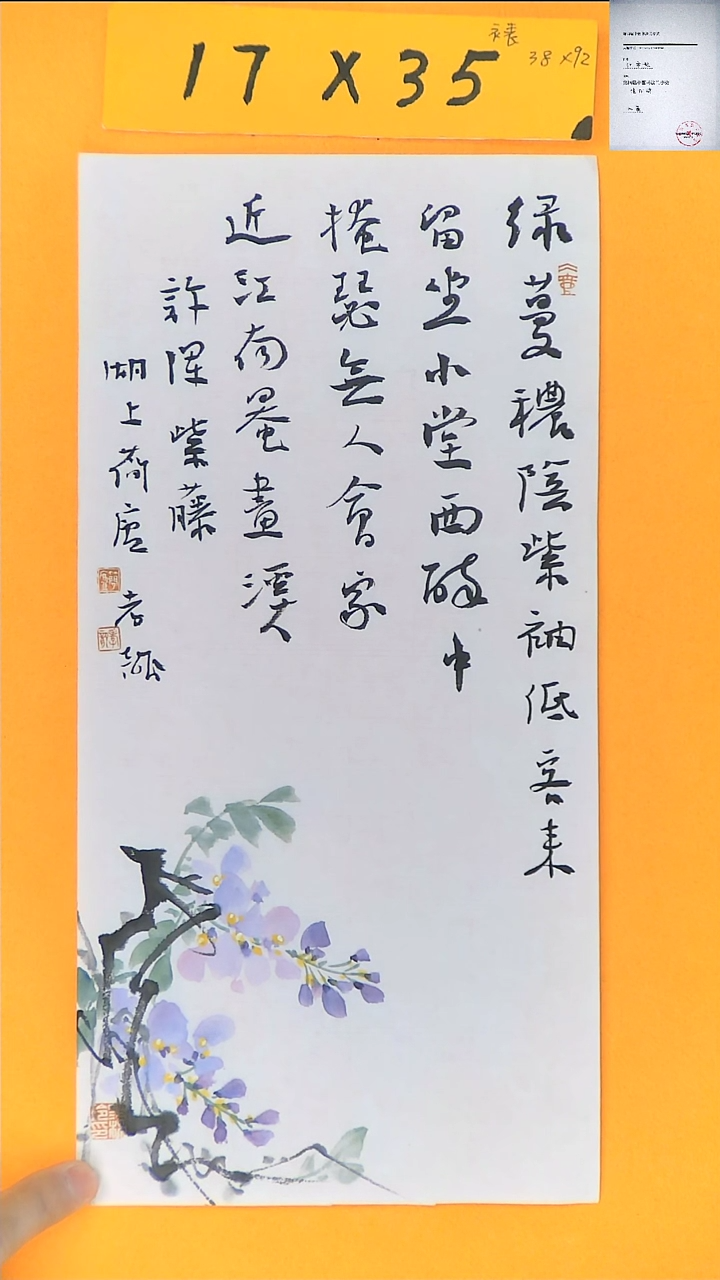 17 X 35
裱
38 x92
绿蔓穠陰紫袖低客来
留坐小堂西醉中
掩瑟無人會家
近江南罨畫溪
許渾紫藤
湖上荷廬